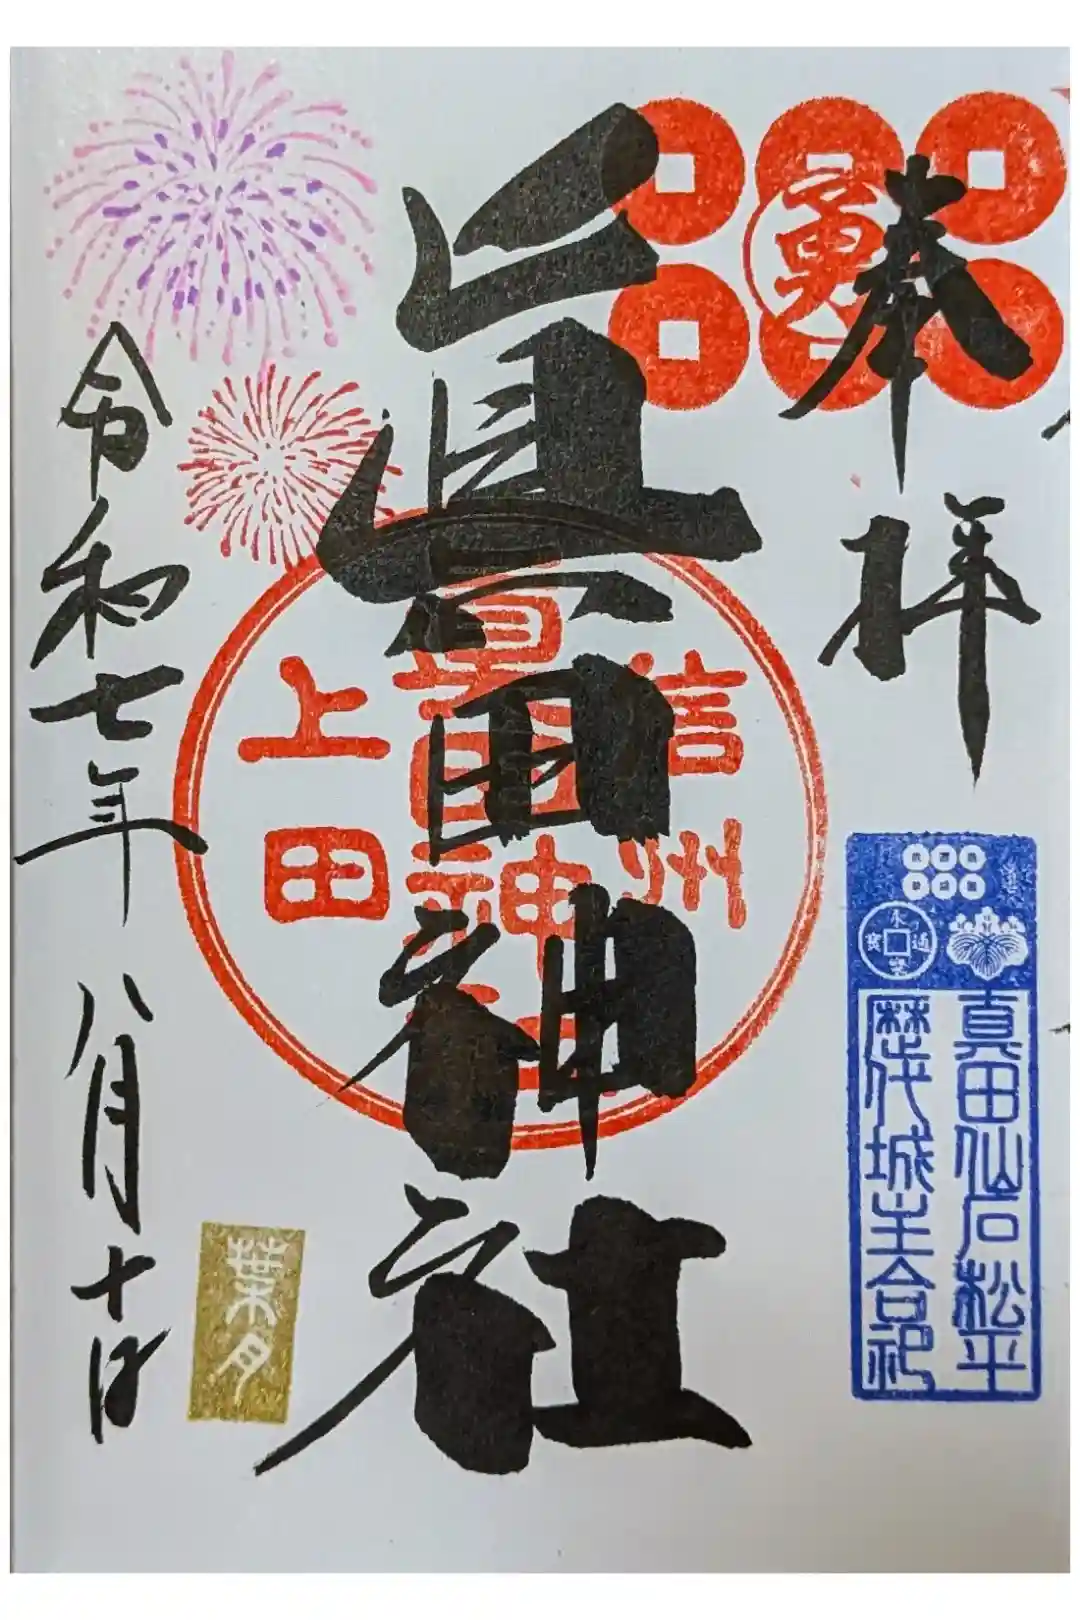 奉拝
真田仙石松平
歴代城主合祀
永楽通寳
眞田神社
信州
眞田神社
上田
令和七年八月十日
葉月